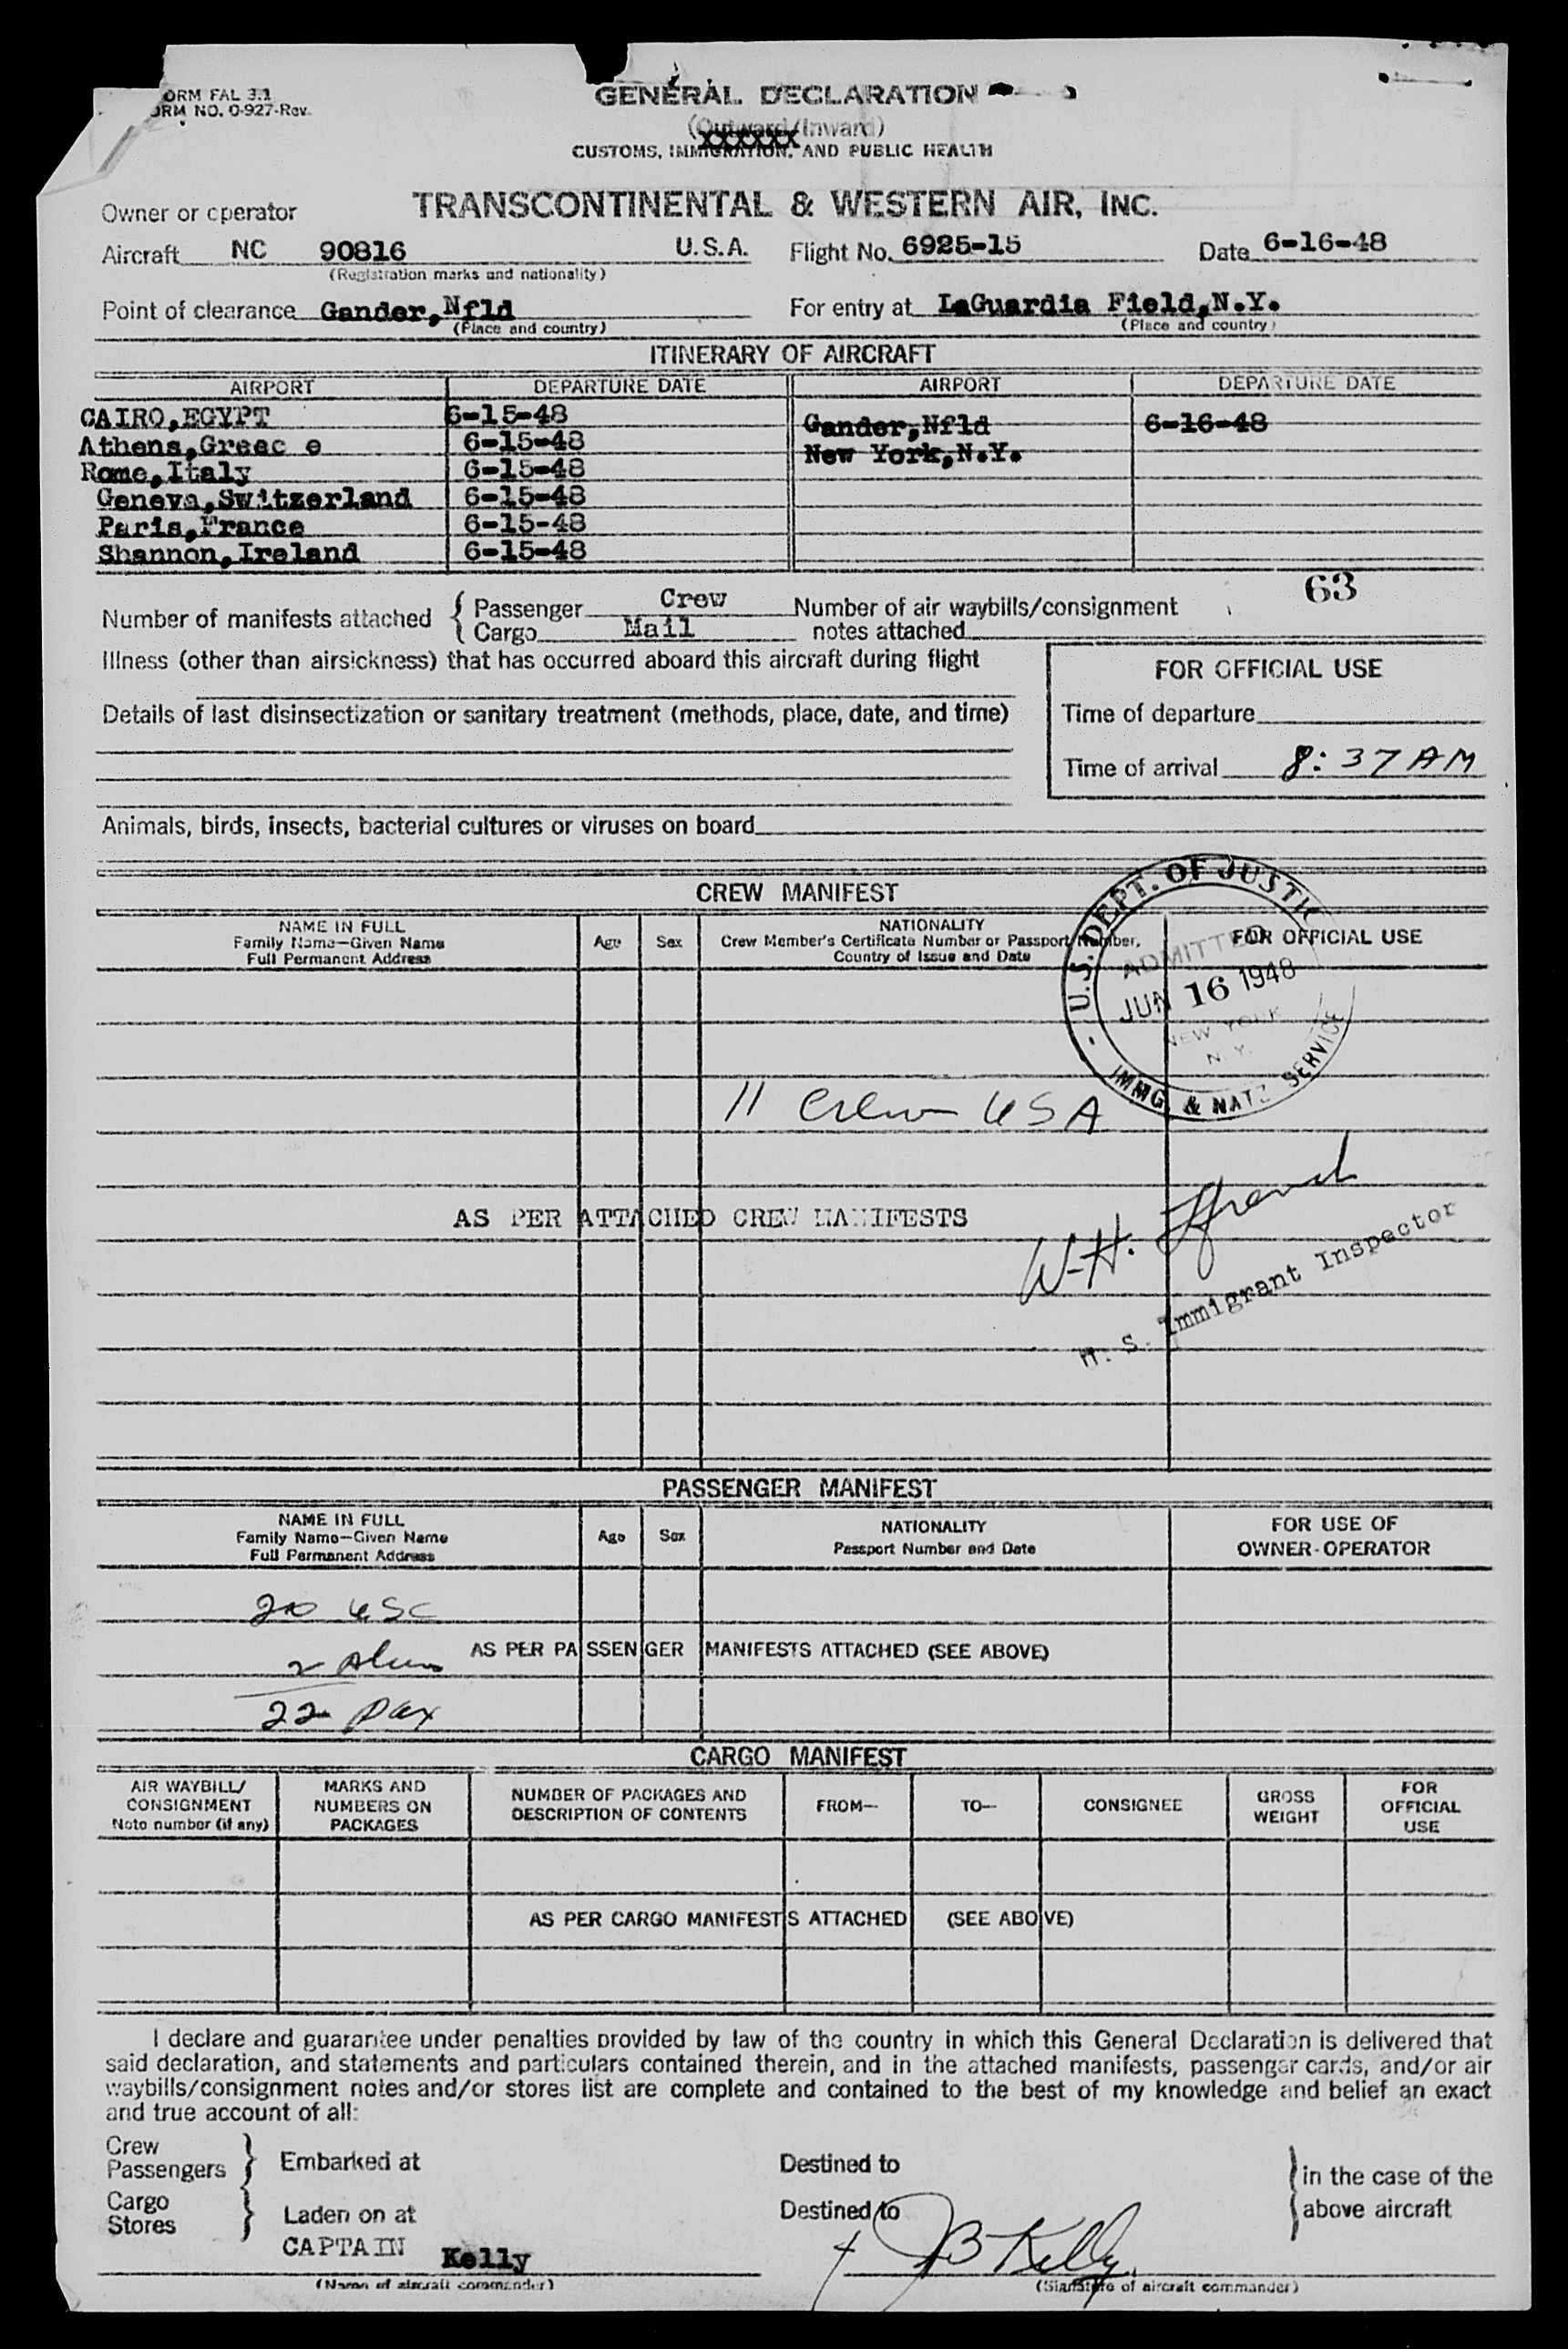 ORM FAL 3.1
ORM NO. 0-927-Rev.
GENERAL DECLARATION
(Outward/Inward)
CUSTOMS, IMMIGRATION, AND PUBLIC HEALTH
Owner or operator TRANSCONTINENTAL & WESTERN AIR, INC.
Aircraft NC 90816 U.S.A. Flight No. 6925-15 Date 6-16-48
(Registration marks and nationality)
Point of clearance Gander,Nfld For entry at LaGuardia Field,N.Y.
(Place and country) (Place and country)
ITINERARY OF AIRCRAFT
AIRPORT DEPARTURE DATE AIRPORT DEPARTURE DATE
CAIRO,EGYPT 6-15-48 Gander,Nfld 6-16-48
Athens,Greec e 6-15-48 New York,N.Y.
Rome,Italy 6-15-48
Geneva,Switzerland 6-15-48
Paris,France 6-15-48
Shannon,Ireland 6-15-48
63
Number of manifests attached { Passenger Crew Number of air waybills/consignment
Cargo Mail notes attached
Illness (other than airsickness) that has occurred aboard this aircraft during flight
FOR OFFICIAL USE
Details of last disinsectization or sanitary treatment (methods, place, date, and time)
Time of departure
Time of arrival 8:37 AM
Animals, birds, insects, bacterial cultures or viruses on board
CREW MANIFEST
NAME IN FULL
Family Name—Given Name
Full Permanent Address
Age Sex
NATIONALITY
Crew Member's Certificate Number or Passport Number,
Country of Issue and Date
FOR OFFICIAL USE
U.S. DEPT. OF JUSTIC
ADMITTED
JUN 16 1948
NEW YORK
N.Y.
IMMG. & NATZ SERVICE
11 Crew USA
AS PER ATTACHED CREW MANIFESTS
W.H. Ffrench
U. S. Immigrant Inspector
PASSENGER MANIFEST
NAME IN FULL
Family Name—Given Name
Full Permanent Address
Age Sex
NATIONALITY
Passport Number and Date
FOR USE OF
OWNER-OPERATOR
20 USC
2 Aliens
AS PER PASSENGER MANIFESTS ATTACHED (SEE ABOVE)
22 pax
CARGO MANIFEST
AIR WAYBILL/
CONSIGNMENT
Note number (if any)
MARKS AND
NUMBERS ON
PACKAGES
NUMBER OF PACKAGES AND
DESCRIPTION OF CONTENTS
FROM—
TO—
CONSIGNEE
GROSS
WEIGHT
FOR
OFFICIAL
USE
AS PER CARGO MANIFESTS ATTACHED (SEE ABOVE)
I declare and guarantee under penalties provided by law of the country in which this General Declaration is delivered that
said declaration, and statements and particulars contained therein, and in the attached manifests, passenger cards, and/or air
waybills/consignment notes and/or stores list are complete and contained to the best of my knowledge and belief an exact
and true account of all:
Crew
Passengers } Embarked at Destined to } in the case of the
Cargo
Stores } Laden on at Destined to } above aircraft
CAPTAIN Kelly JB Kelly
(Name of aircraft commander) (Signature of aircraft commander)